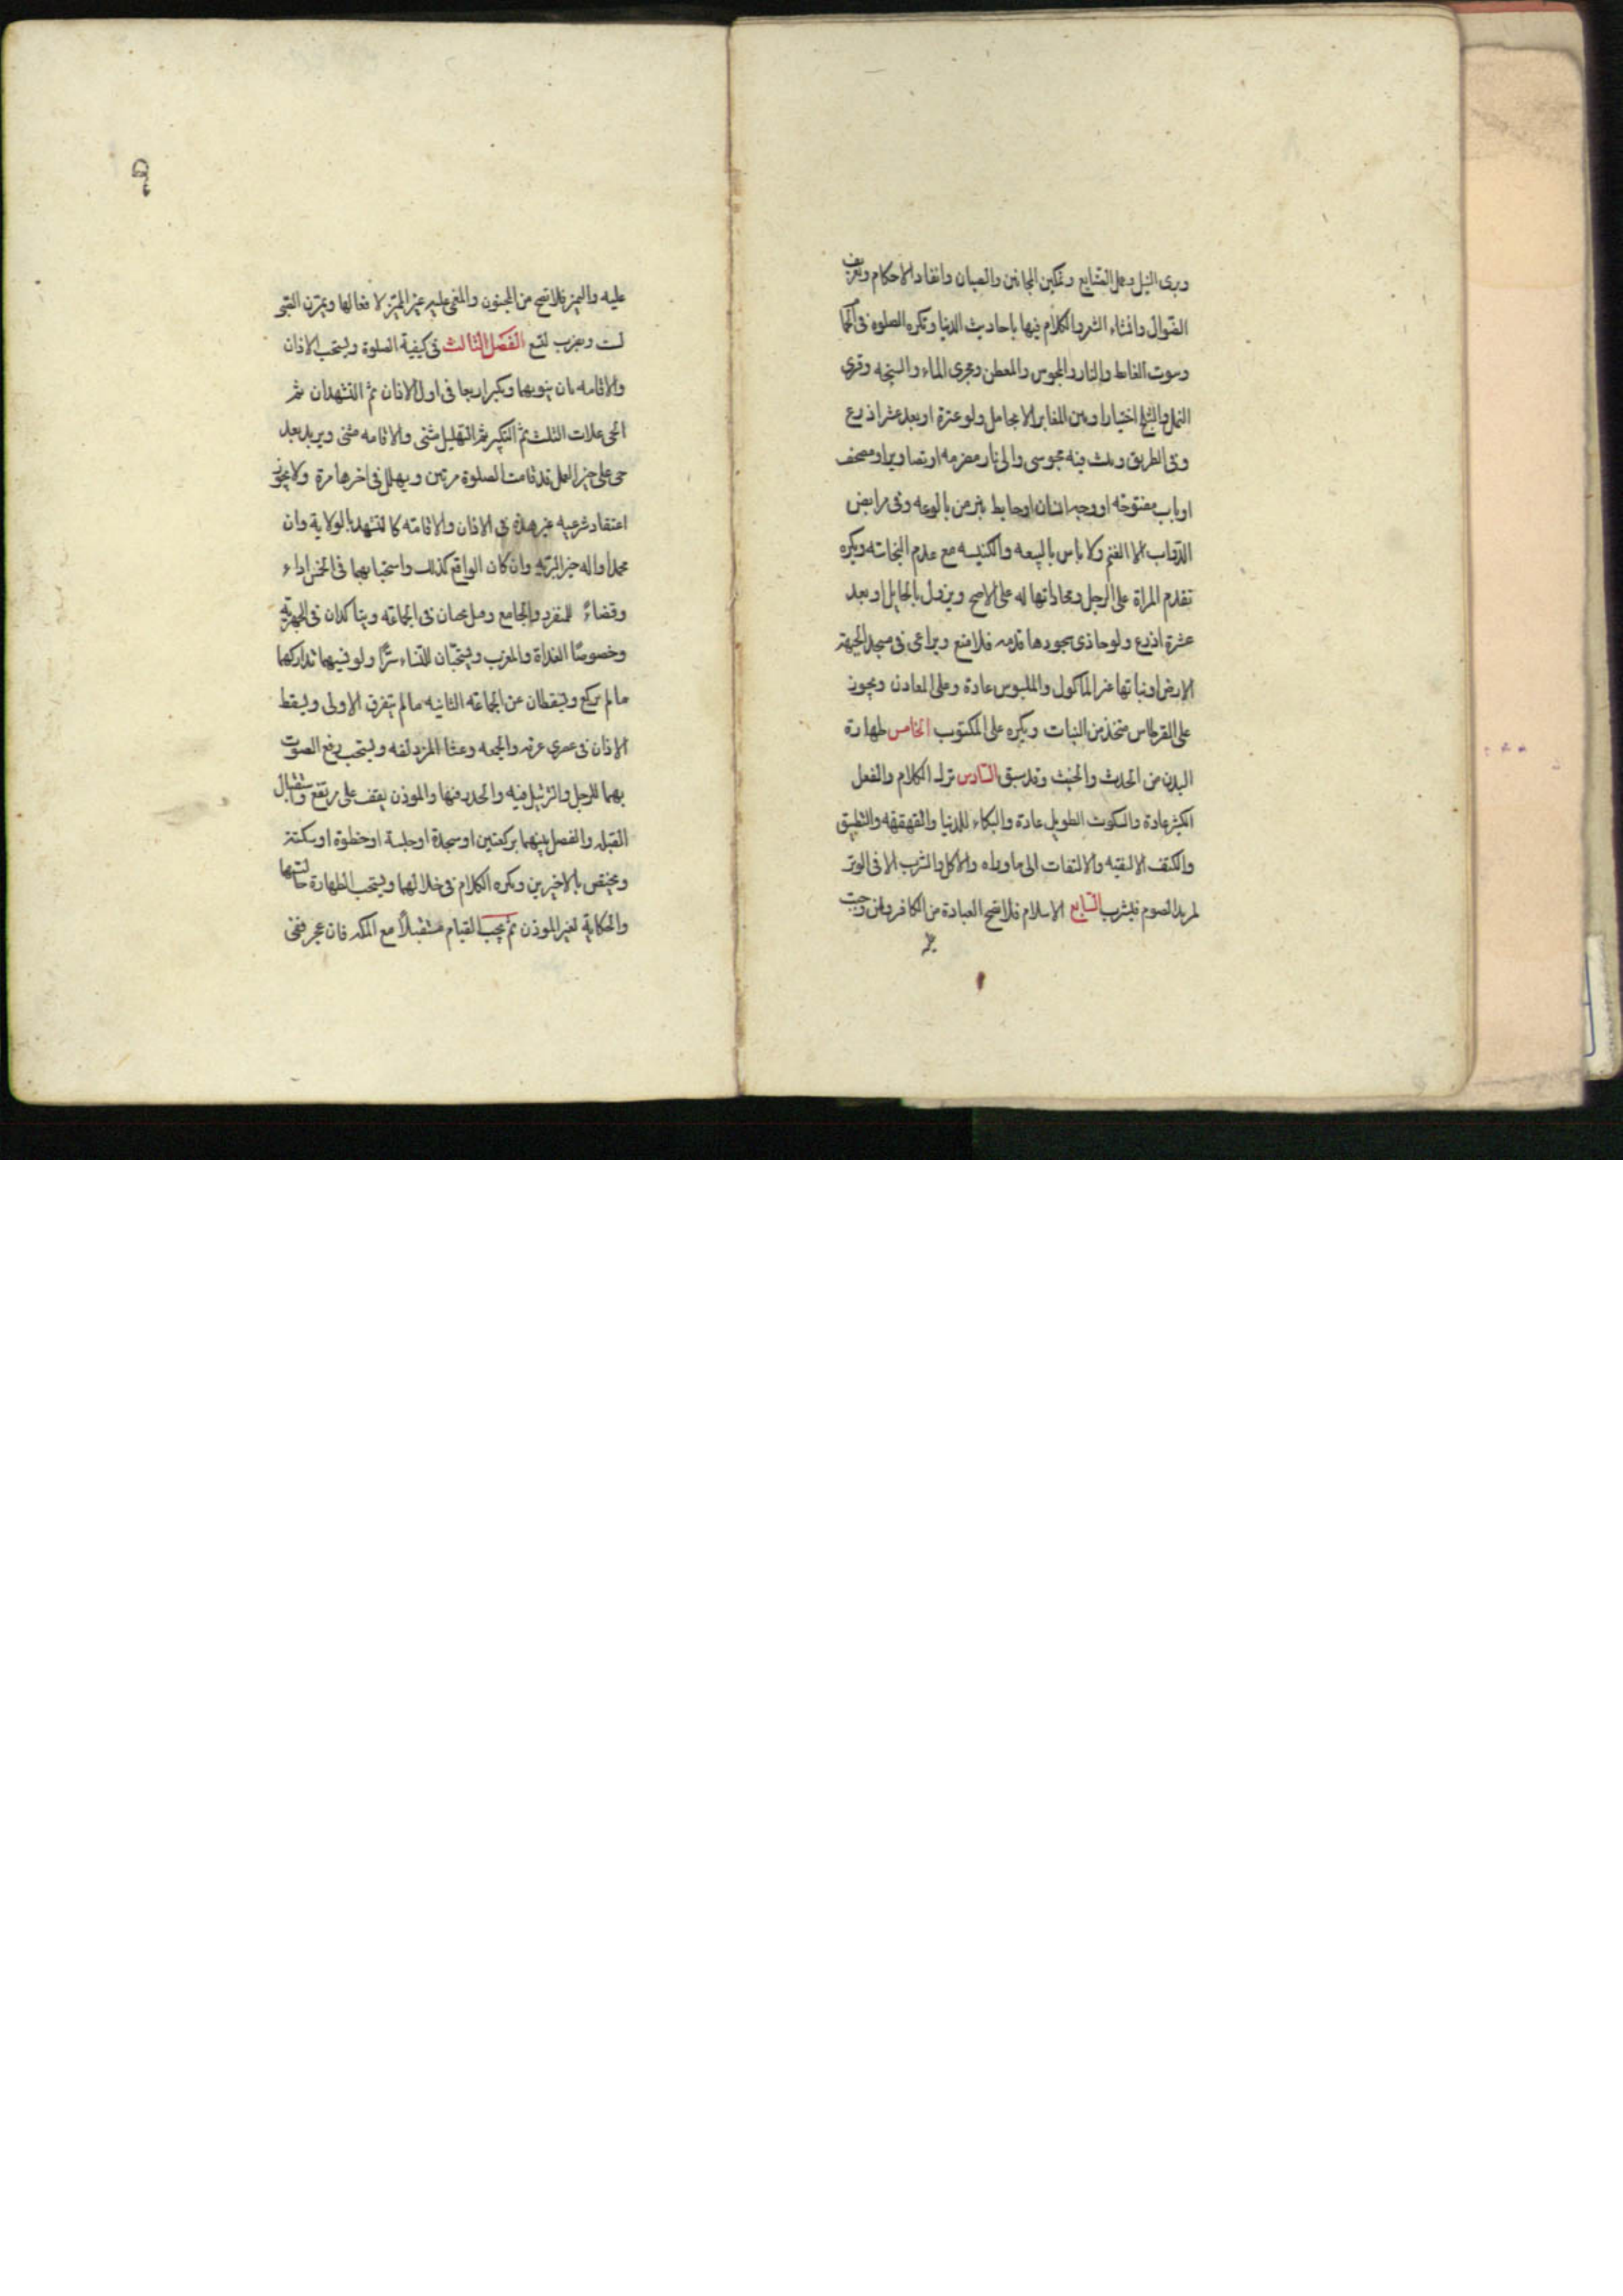 وبرى النبل وعمل الصنايع وتمكين المجانين والصبيان وانفاد الاحكام وتعريف
الضوال وانشاد الشعر والكلام فيها باحاديث الدنيا وتكره الصلوة فى الحمام
وبيوت الغايط والنار والمجوس والمعطن ومجرى الماء والسبخه وقرى
النمل والثلج اختيارا وبين المقابر الا بحايل ولو عنزة او بعد عشر اذرع
وفى الطريق وبيت فيه مجوسى والى نار مضرمه او تصاوير او مصحف
او باب مفتوحه او وجه انسان او حايط ينز من بالوعه وفى مرابض
الدواب الا الغنم ولا باس بالبيعه والكنيسه مع عدم النجاسته ويكره
تقدم المراة على الرجل ومحاذاتها له على الاصح ويزول بالحايل او بعد
عشرة اذرع ولو حاذى سجودها قدمه فلا منع ويراعى فى مسجد الجبهة
الارض او نباتها غير الماكول والملبوس عادة وعلى المعادن ويجوز
على القرطاس متخذ من النبات ويكره على المكتوب الخامس طهارة
البدن من الحدث والخبث وقد سبق السادس ترك الكلام والفعل
الكثير عادة والسكوت الطويل عادة والبكاء للدنيا والقهقهه والتطبيق
والكتف الا لتقيه والالتفات الى ما وراءه والاكل والشرب الا فى الوتر
لمريد الصوم فيشرب السابع الاسلام فلا تصح العبادة من الكافر وان وجبت
عليه والتميز فلا تصح من المجنون والمغمى عليه وغير المميز لافعالها ويمرن الصبى
لست ويضرب لتسع الفصل الثالث فى كيفية الصلوة ويستحب الاذان
والاقامه بان ينويهما ويكبر اربعا فى اول الاذان ثم التشهدان ثم
الحيعلات الثلث ثم التكبير ثم التهليل مثنى والاقامه مثنى ويزيد بعد
حى على خير العمل قد قامت الصلوة مرتين ويهلل فى اخرها مرة ولا يجوز
اعتقاد شرعيه غير هذه فى الاذان والاقامته كالتشهد بالولاية وان
محمدا واله خير البرية وان كان الواقع كذلك واستحبابهما فى الخمس اداء
وقضاء للمنفرد والجامع وقيل يجبان فى الجماعه ويتاكدان فى الجهرية
وخصوصا الغداة والمغرب ويستحبان للنساء سرا ولو نسيهما تداركهما
مالم يركع ويسقطان عن الجماعه الثانيه مالم يتفرق الاولى ويسقط
الاذان فى عصرى عرفه والجمعه وعشا المزدلفه ويستحب رفع الصوت
بهما للرجل والترتيل فيه والحدر فيها والموذن يقف على مرتفع واستقبال
القبله والفصل بينهما بركعتين او سجدة او جلسة او خطوة او سكتة
ويختص بالاخيرين ويكره الكلام فى خلالهما ويستحب الطهارة حالتهما
والحكاية لغير الموذن ثم يجب القيام مستقبلا مع المكنه فان عجز ففى